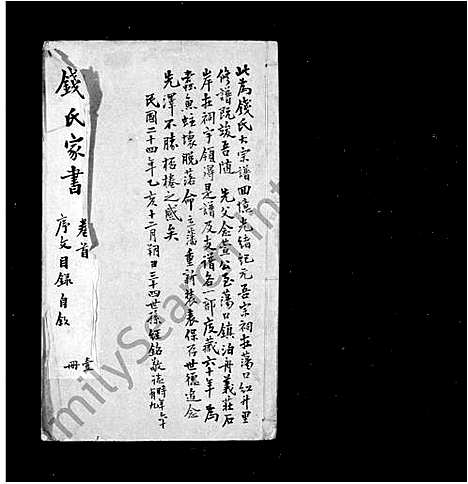 此為錢氏大宗譜回憶光緒紀元吾宗祠在蕩口鎮升里
修譜既竣吾隨 先父念萱公至蕩口鎮泊舟義莊石
岸在祠宇領得是譜及支譜各一部庋藏六十年為
蠹魚蛀壞脫落命立藩重新裝表保存世德追念
先澤不勝桮棬之感矣
民國二十四年乙亥十二月朔日三十四世孫 銘敬誌時年六十有九
錢氏家書
卷首
序文目錄自敘
壹冊
milySearch.int